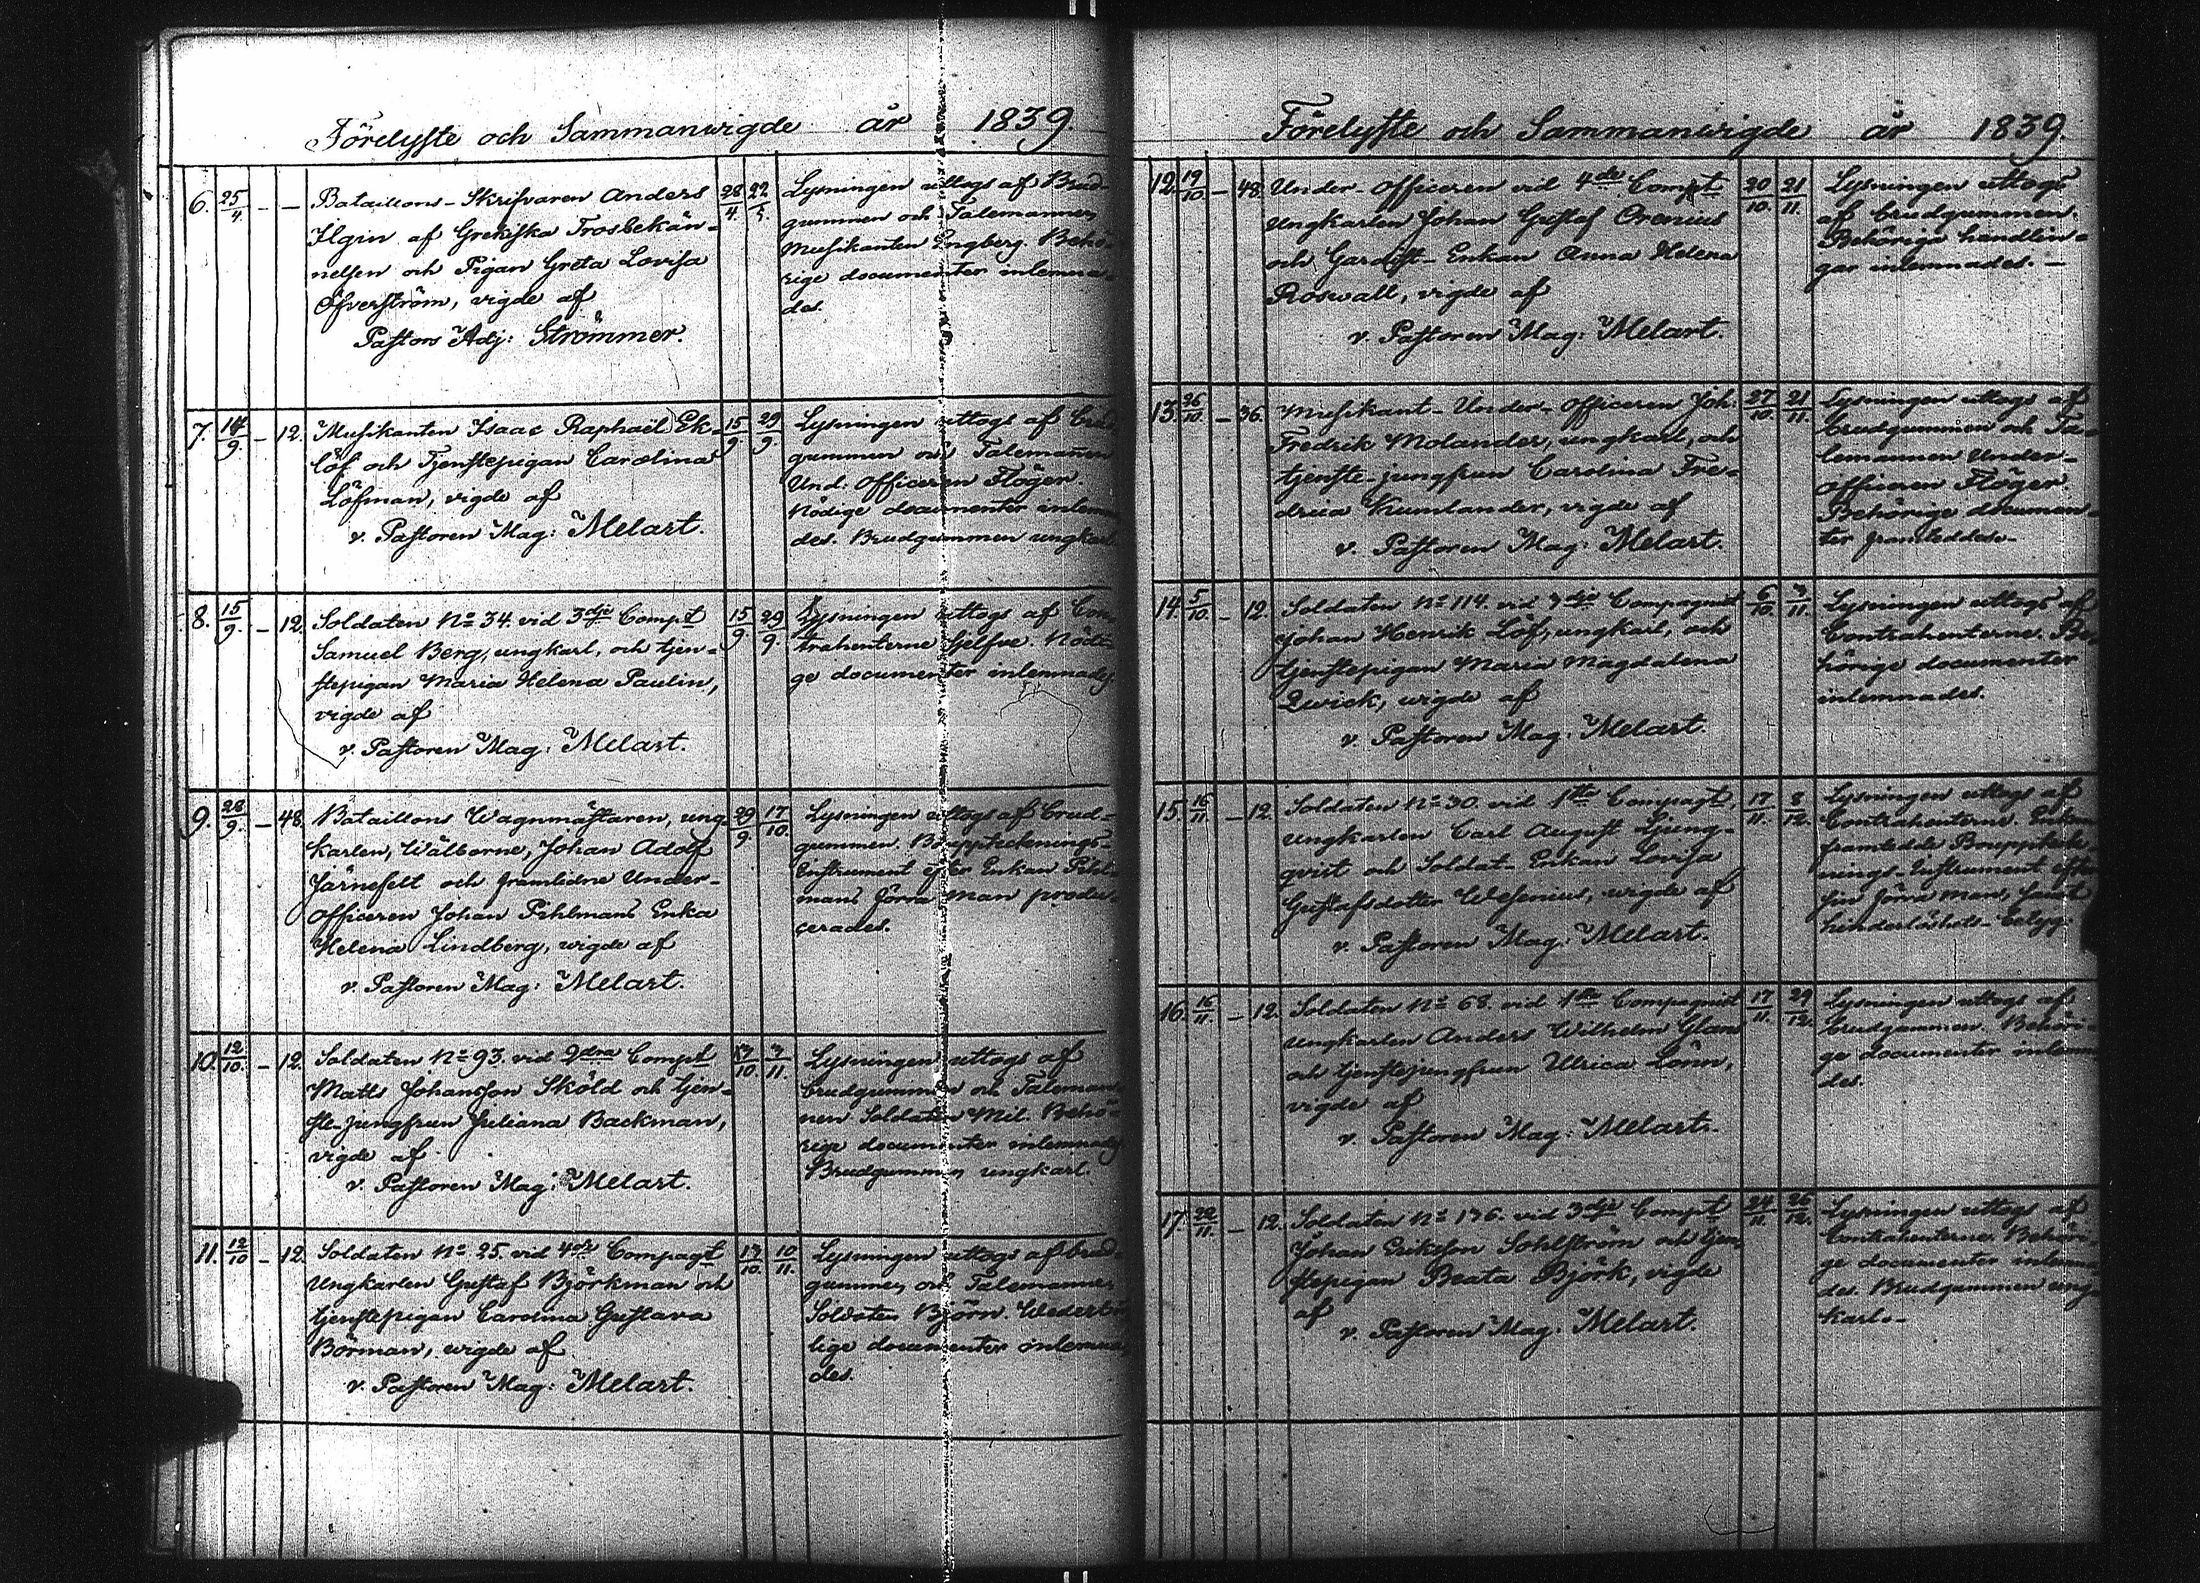 Förelyste och Sammanvigde år 1839.
6. 25/4. - - Bataillons-Skrifvaren Anders 28/4. 22/5. Lysningen uttogs af Brud-
Ilgin af Grekiska Trosbekän- gummen och Talemannen
nelsen och Pigan Greta Lovisa Musikanten Engberg. Behö-
Öfverström, vigde af rige documenter inlemna-
Pastors Adj: Strömmer. des.
7. 14/9. - 12. Musikanten Isaac Raphaël Ek- 15/9 29/9. Lysningen uttogs af Brud
löf och Tjenstepigan Carolina gummen och Talemannen
Löfman, vigde af Und. Officeren Flöger.
v. Pastoren Mag: Melart. Nödige documenter inlemna
des. Brudgummen ungkarl.
8. 15/9. - 12. Soldaten No 34. vid 3dje Compt 15/9 29/9. Lysningen uttogs af Con-
Samuel Berg, ungkarl, och tjen- trahenterne sjelfve. Nödi-
stepigan Maria Helena Paulin, ge documenter inlemnades.
vigde af
v. Pastoren Mag: Melart.
9. 28/9. - 48. Bataillons Wagnmästaren, ung- 29/9 17/10. Lysningen uttogs af Brud-
karlen, Wälborne, Johan Adolf gummen. Bouppteckning-
Järnefelt och framlidne Under- Instrument efter Enkan Pihl-
officeren Johan Pihlmans Enka mans förra man produ-
Helena Lindberg, vigde af cerades.
v. Pastoren Mag: Melart.
10. 12/10. - 12. Soldaten No 93. vid 2dra Compt 13/10. 3/11. Lysningen uttogs af
Matts Johansson Sköld och tjen- brudgummen och Taleman-
ste-jungfrun Juliana Backman, nen Soldaten Mil. Behö-
vigde af rige documenter inlemnades
v. Pastoren Mag: Melart. Brudgummen ungkarl.
11. 12/10 - 12. Soldaten No 25. vid 4de Compagt 13/10. 10/11. Lysningen uttogs af brud-
Ungkarlen Gustaf Björkman och gummen och Talemannen
tjenstepigan Carolina Gustava Soldaten Björn. Wederbör
Börman, vigde af lige documenter inlemna
v. Pastoren Mag: Melart. des.
Förelyste och Sammanvigde år 1839.
12. 19/10. - 48. Under-Officeren vid 4de Compt 20/10. 21/11. Lysningen uttogs
ungkarlen Johan Gustaf Orenius af brudgummen.
och Gardist-Enkan Anna Helena Behörige handlin-
Roswall, vigde af gar inlemnades.-
v. Pastoren Mag: Melart.
13. 26/10. - 36. Musikant-Under-Officeren Joh. 27/10. 21/11. Lysningen uttogs af
Fredrik Molander, ungkarl, och brudgummen och Ta-
tjenste-jungfrun Carolina Fre- lemannen Under-
drica Kumlander, vigde af officeren Flöger.
v. Pastoren Mag: Melart. Behörige documen-
ter framteddes.-
14. 5/10. - 12. Soldaten No 114. vid 3dje Compagniet 6/10. 3/11. Lysningen uttogs af
Johan Henrik Löf, ungkarl, och Contrahenterne. Be-
tjenstepigan Maria Magdalena hörige documenter
Qwick, vigde af inlemnades.
v. Pastoren Mag: Melart.
15. 16/11. - 12. Soldaten No 30. vid 1sta Compagt, 17/11. 8/12. Lysningen uttogs af
ungkarlen Carl August Ljung- Contrahenterne. Enkan
qvist och Soldat-Enkan Lovisa framtedde Boupptek-
Gustafsdotter Wesenius, vigde af nings-Instrument efter
v. Pastoren Mag: Melart. sin förra man, samt
hinderlöshets-betyg.
16. 16/11. - 12. Soldaten No 68. vid 1sta Compagniet 17/11. 29/12. Lysningen uttogs af
ungkarlen Anders Wilhelm Glans brudgummen. Behöri-
och tjenstejungfrun Ulrica Lörin, ge documenter inlemna
vigde af des.
v. Pastoren Mag: Melart.
17. 22/11. - 12. Soldaten No 136. vid 3dje Compt 24/11. 26/12. Lysningen uttogs af
Johan Eriksson Sohlström och tjen- Contrahenterne. Behöri-
stepigan Beata Björk, vigde ge documenter inlemna
af des. Brudgummen ung-
v. Pastoren Mag: Melart. karl.-